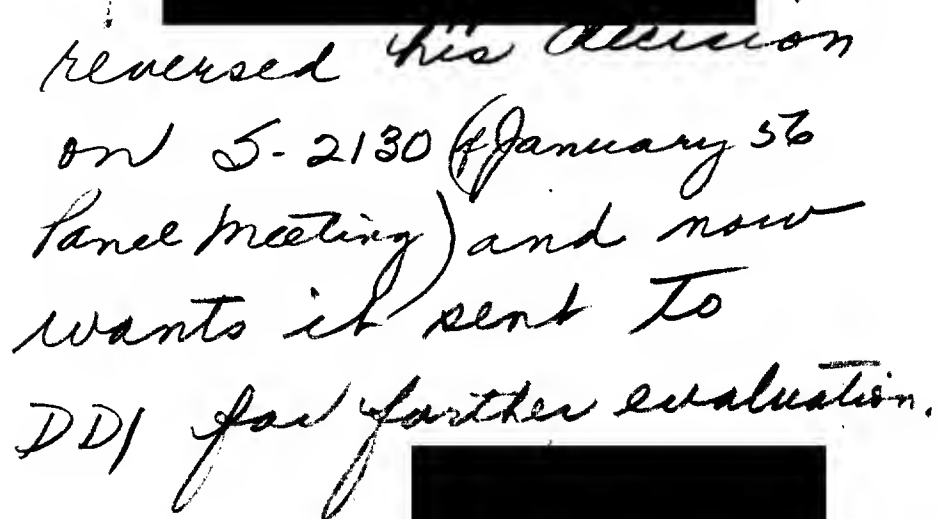 reversed his decision
on S-2130 (January 56
Panel Meeting) and now
wants it sent to
DDI for further evaluation.